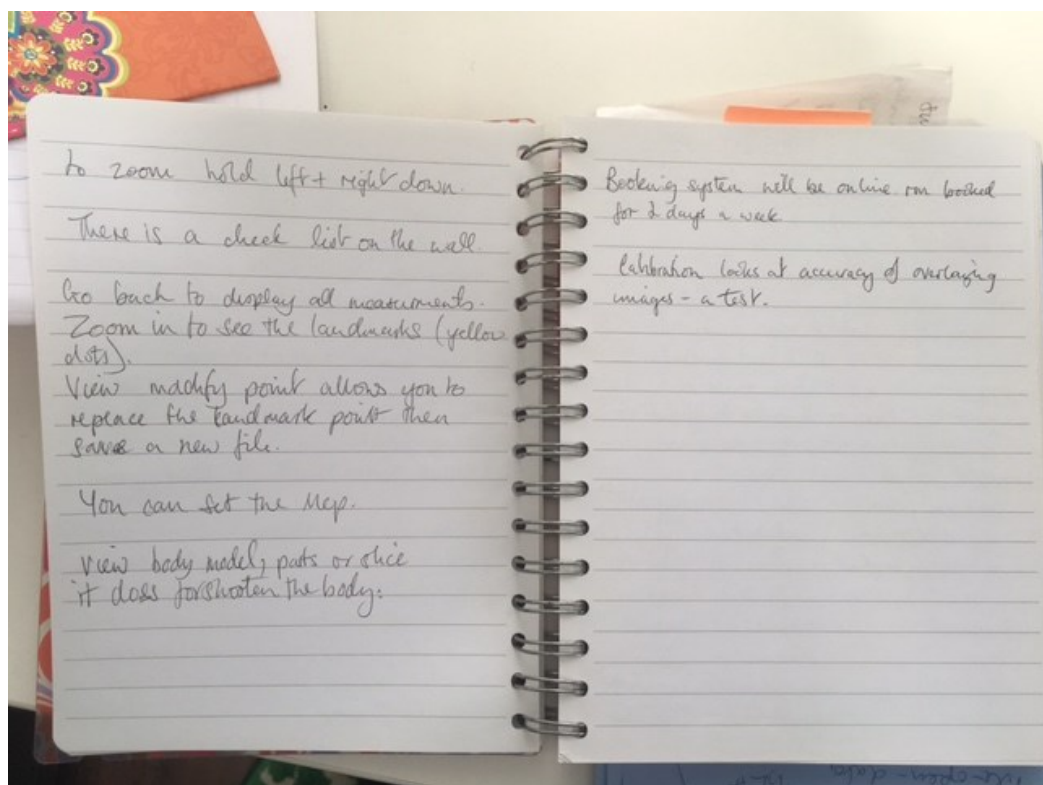 to zoom hold left + right down.
There is a check list on the wall.
Go back to display all measurments.
Zoom in to see the landmarks (yellow
dots).
View modify point allows you to
replace the landmark point then
a new file.
You can set the Map.
View body model, parts or slice
it does forshooten the body.
Booking system will be online booked
for 2 days a week
Calibration looks at accuracy of overlaying
images - a test.